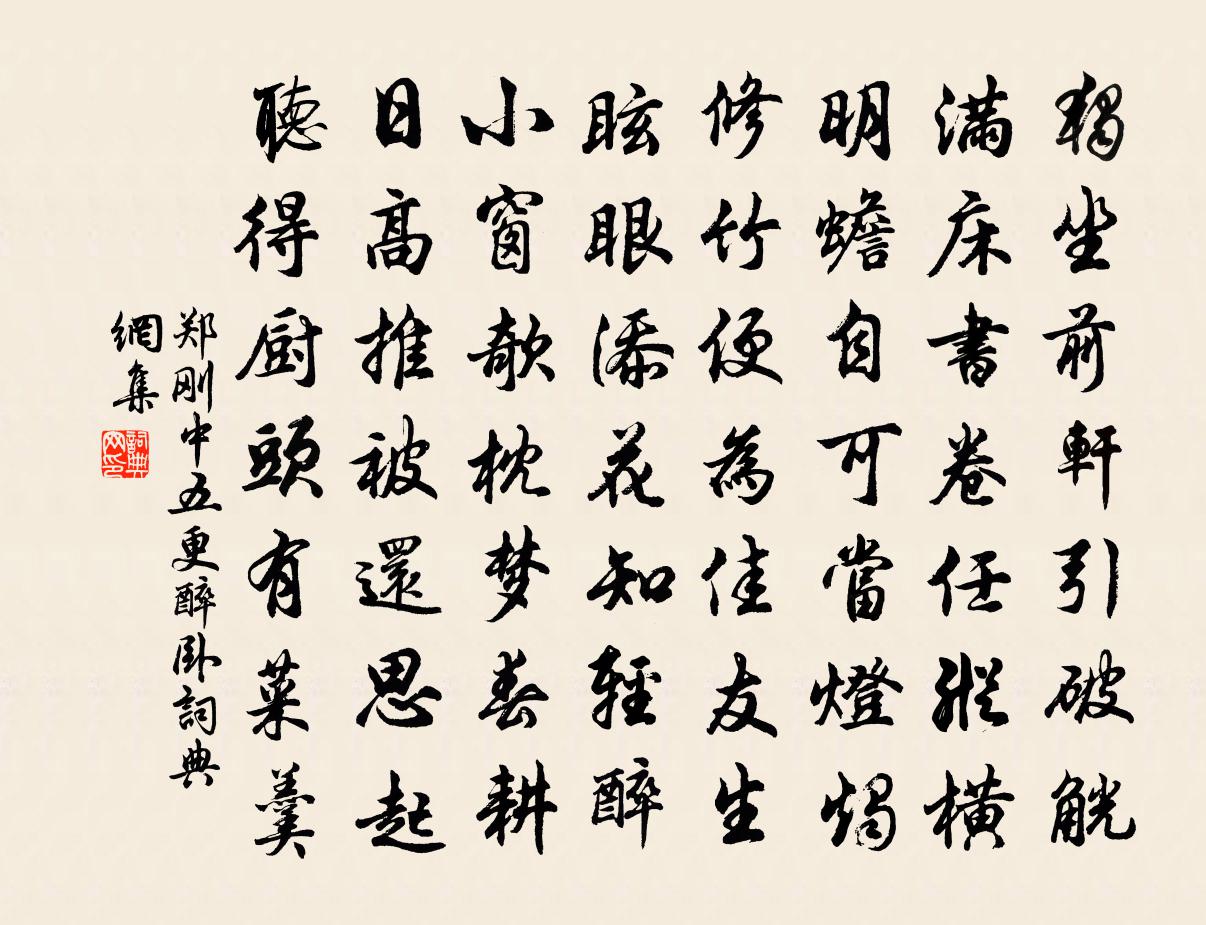 獨坐前軒引破觥
滿床書卷任縱橫
明蟾自可當燈燭
修竹便為佳友生
眩眼添花知輕醉
小窗欹枕梦春耕
日高推被還思起
聽得厨頭有菜羹
郑刚中五更醉卧詞典
網集
詞典网印